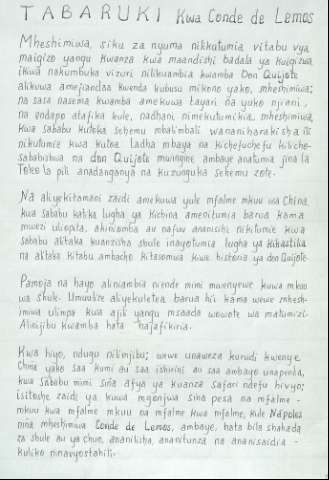 TABARUKI Kwa Conde de Lemos
Mheshimiwa, siku za nyuma nilikutumia vitabu vya
maigizo yangu kwanza kwa maandishi badala ya kuigizwa,
ikiwa nakumbuka vizuri nilikuambia kwamba Don Quijote
alikuwa amejiandaa kwenda kubusu mikono yako, mheshimiwa;
na sasa nasema kwamba amekuwa tayari na yuko njiani,
na endapo atafika kule, nadhani nimekutumikia, mheshimiwa,
kwa sababu kutoka sehemu mbalimbali wananiharakisha ili
nikutumie kwa kutoa ladha mbaya na kichefuchefu kilicho-
sababishwa na don Quijote mwingine, ambaye anatumia jina la
Toleo la pili anadanganya na kuzunguka sehemu zote.
Na aliyekitamani zaidi amekuwa yule mfalme mkuu wa China,
kwa sababu katika lugha ya Kichina amenitumia barua kama
mwezi uliopita, akiniomba au nafuu ananisihi nikitumie kwa
sababu alitaka kuanzisha shule inayotumia lugha ya Kihastilia
na alitaka kitabu ambacho kitasomwa kiwe historia ya don Quijote.
Pamoja na hayo akaniambia niende mimi mwenyewe kuwa mkuu
wa shule. Umuulize aliyekuletea barua hii kama wewe mhesh-
imiwa ulimpa kwa ajili yangu msaada wowote wa matumizi.
Alinijibu kwamba hata hajafikiria.
Kwa hiyo, ndugu nilimjibu; wewe unaweza kurudi kwenye
China yako saa kumi au saa ishirini au saa ambayo unapenda,
kwa sababu mimi sina afya ya kuanza safari ndefu hivyo;
isitoshe zaidi ya kuwa mgonjwa sina pesa na mfalme-
mkuu kwa mfalme mkuu na mfalme kwa mfalme, kule Nápoles
nina mheshimiwa Conde de Lemos, ambaye, hata bila shahada
za shule au ya chuo, ananilisha, ananitunza na ananisaidia
kuliko ninavyostahili.